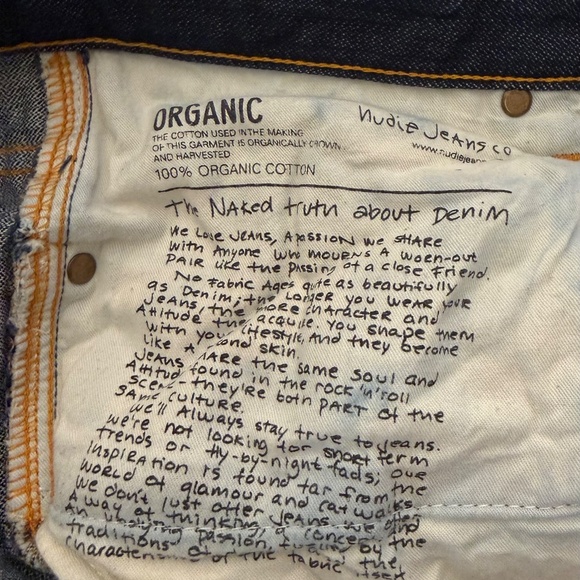 ORGANIC
THE COTTON USED IN THE MAKING
OF THIS GARMENT IS ORGANICALLY GROWN
AND HARVESTED
100% ORGANIC COTTON
Nudie Jeans co
www.nudiejeans
The Naked truth about Denim
We Love Jeans, A passion we share
with Anyone who mourns a worn-out
pair like the passing of a close friend.
No Fabric Ages quite as beautifully
as Denim; the longer you wear your
Jeans the more character and
Attitude the acquire. You shape them
with you lifestyle, And they become
like a second skin.
Jeans share the same soul and
Attitud found in the rock'n'roll
scene - they're both part of the
same culture.
We'll Always stay true to jeans.
We're not looking for short term
trends or fly-by-night fads; our
inspiration is found far from the
world of glamour and catwalks.
We don't just offer Jeans, we offer
A way of thinking, a concept and
An undying passion, fueled by the
traditions of the
characteris of the fabric itself.